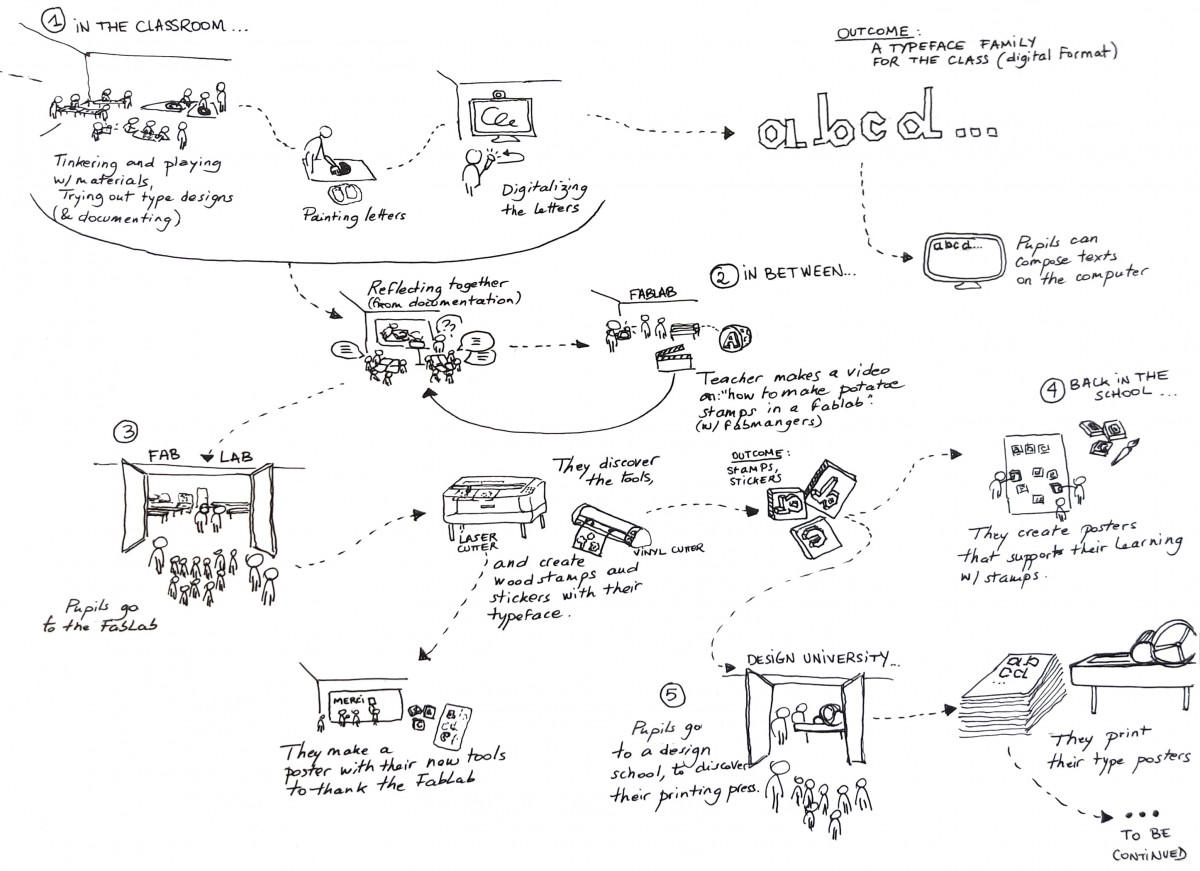 1 IN THE CLASSROOM...
Tinkering and playing
w/ materials,
Trying out type designs
(& documenting)
Painting letters
Digitalizing
the letters
OUTCOME:
A TYPEFACE FAMILY
FOR THE CLASS (digital Format)
abcd...
abcd...
Pupils can
compose texts
on the computer
Reflecting together
(from documentation)
??
2 IN BETWEEN...
FABLAB
A
Teacher makes a video
on: "how to make potatoe
stamps in a fablab".
(w/ fabmangers)
3
FAB LAB
Pupils go
to the FabLab
LASER
CUTTER
They discover
the tools,
VINYL CUTTER
and create
wood stamps and
stickers with their
typeface.
OUTCOME:
STAMPS,
STICKERS
4 BACK IN THE
SCHOOL...
They create posters
that supports their learning
w/ stamps.
MERCI
They make a
poster with their new tools
to thank the FabLab
5
DESIGN UNIVERSITY...
Pupils go
to a design
school, to discover
their printing press.
ab
cd
...
They print
their type posters
...
TO BE
CONTINUED